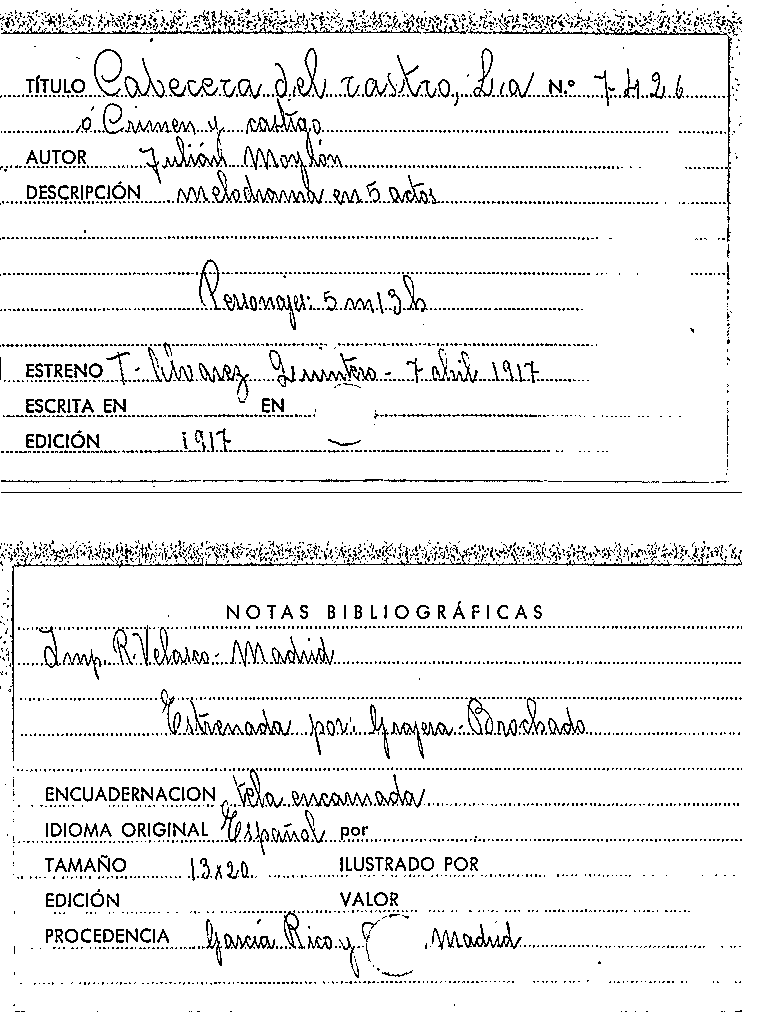 TÍTULO Cabecera del rastro, La N.º 7426
ó Crimen y castigo
AUTOR Julián Moylón
DESCRIPCIÓN melodrama en 5 actos
Personajes: 5 m 13 h
ESTRENO T- Alvarez Quintero - 7 abril 1917
ESCRITA EN EN
EDICIÓN 1917
NOTAS BIBLIOGRÁFICAS
Imp. R. Velasco - Madrid
Estrenada por: Grajera - Brochado
ENCUADERNACION tela encarnada
IDIOMA ORIGINAL Español por
TAMAÑO 13x20 ILUSTRADO POR
EDICIÓN VALOR
PROCEDENCIA García Rico y Madrid